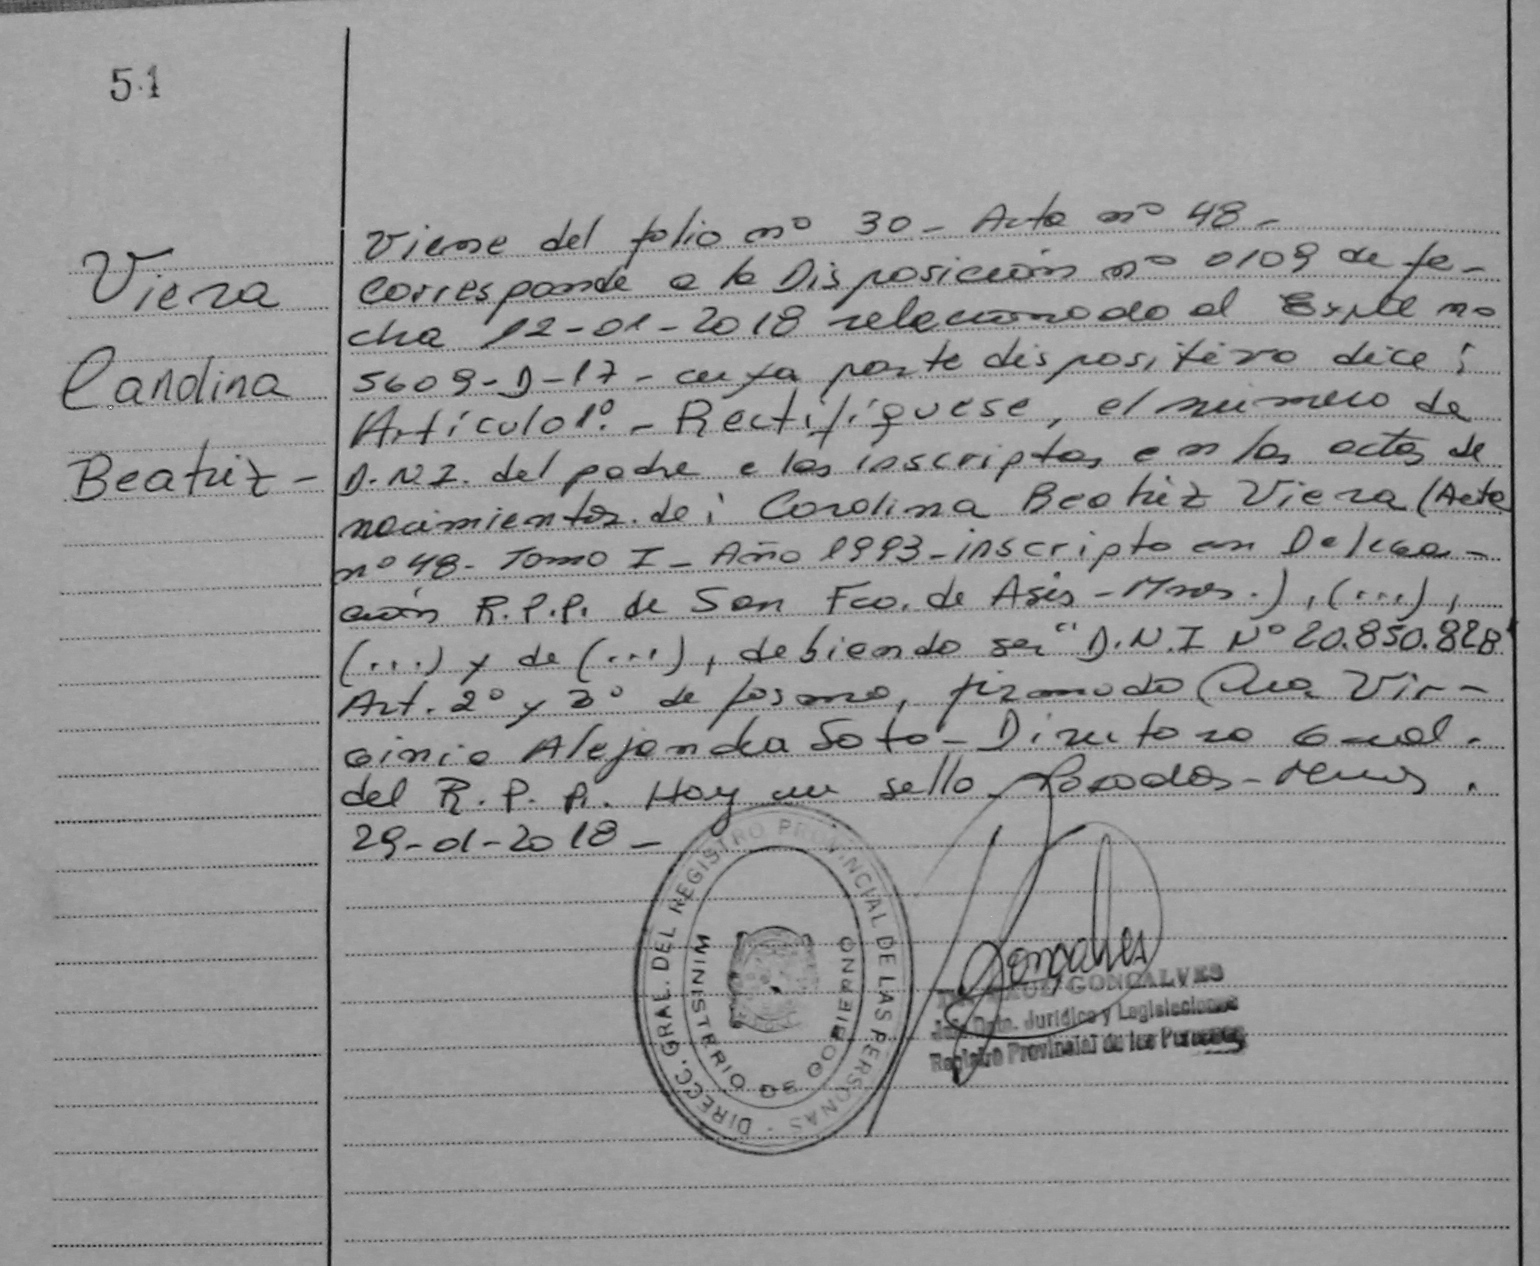 51
Viera
Carolina
Beatriz -
Viene del folio nº 30 - Acta nº 48 -
Corresponde a la Disposición nº 0109 de fe-
cha 12-01-2018 relacionado al Expte nº
5609-D-17 - cuya parte dispositiva dice:
Artículo 1º. - Rectifíquese, el número de
D.N.I. del padre e los inscriptos en las actas de
nacimientos de: Carolina Beatriz Viera (Acta
nº 48 - Tomo I - Año 1993 - inscripta en Delega-
ción R.P.P. de San Fco. de Asis - Mnes.), (...),
(...) y de (...), debiendo ser "D.N.I Nº 20.850.828"
Art. 2º y 3º de forma, firmado Dra Vir-
ginia Alejandra Soto - Directora Gral.
del R.P.P. Hay un sello. Posadas - Mnes.
29-01-2018 -
DIRECC. GRAL. DEL REGISTRO PROVINCIAL DE LAS PERSONAS -
MINISTERIO DE GOBIERNO
Gonçalves
RAUL GONCALVES
Dpto. Jurídico y Legislaciones
Registro Provincial de las Personas